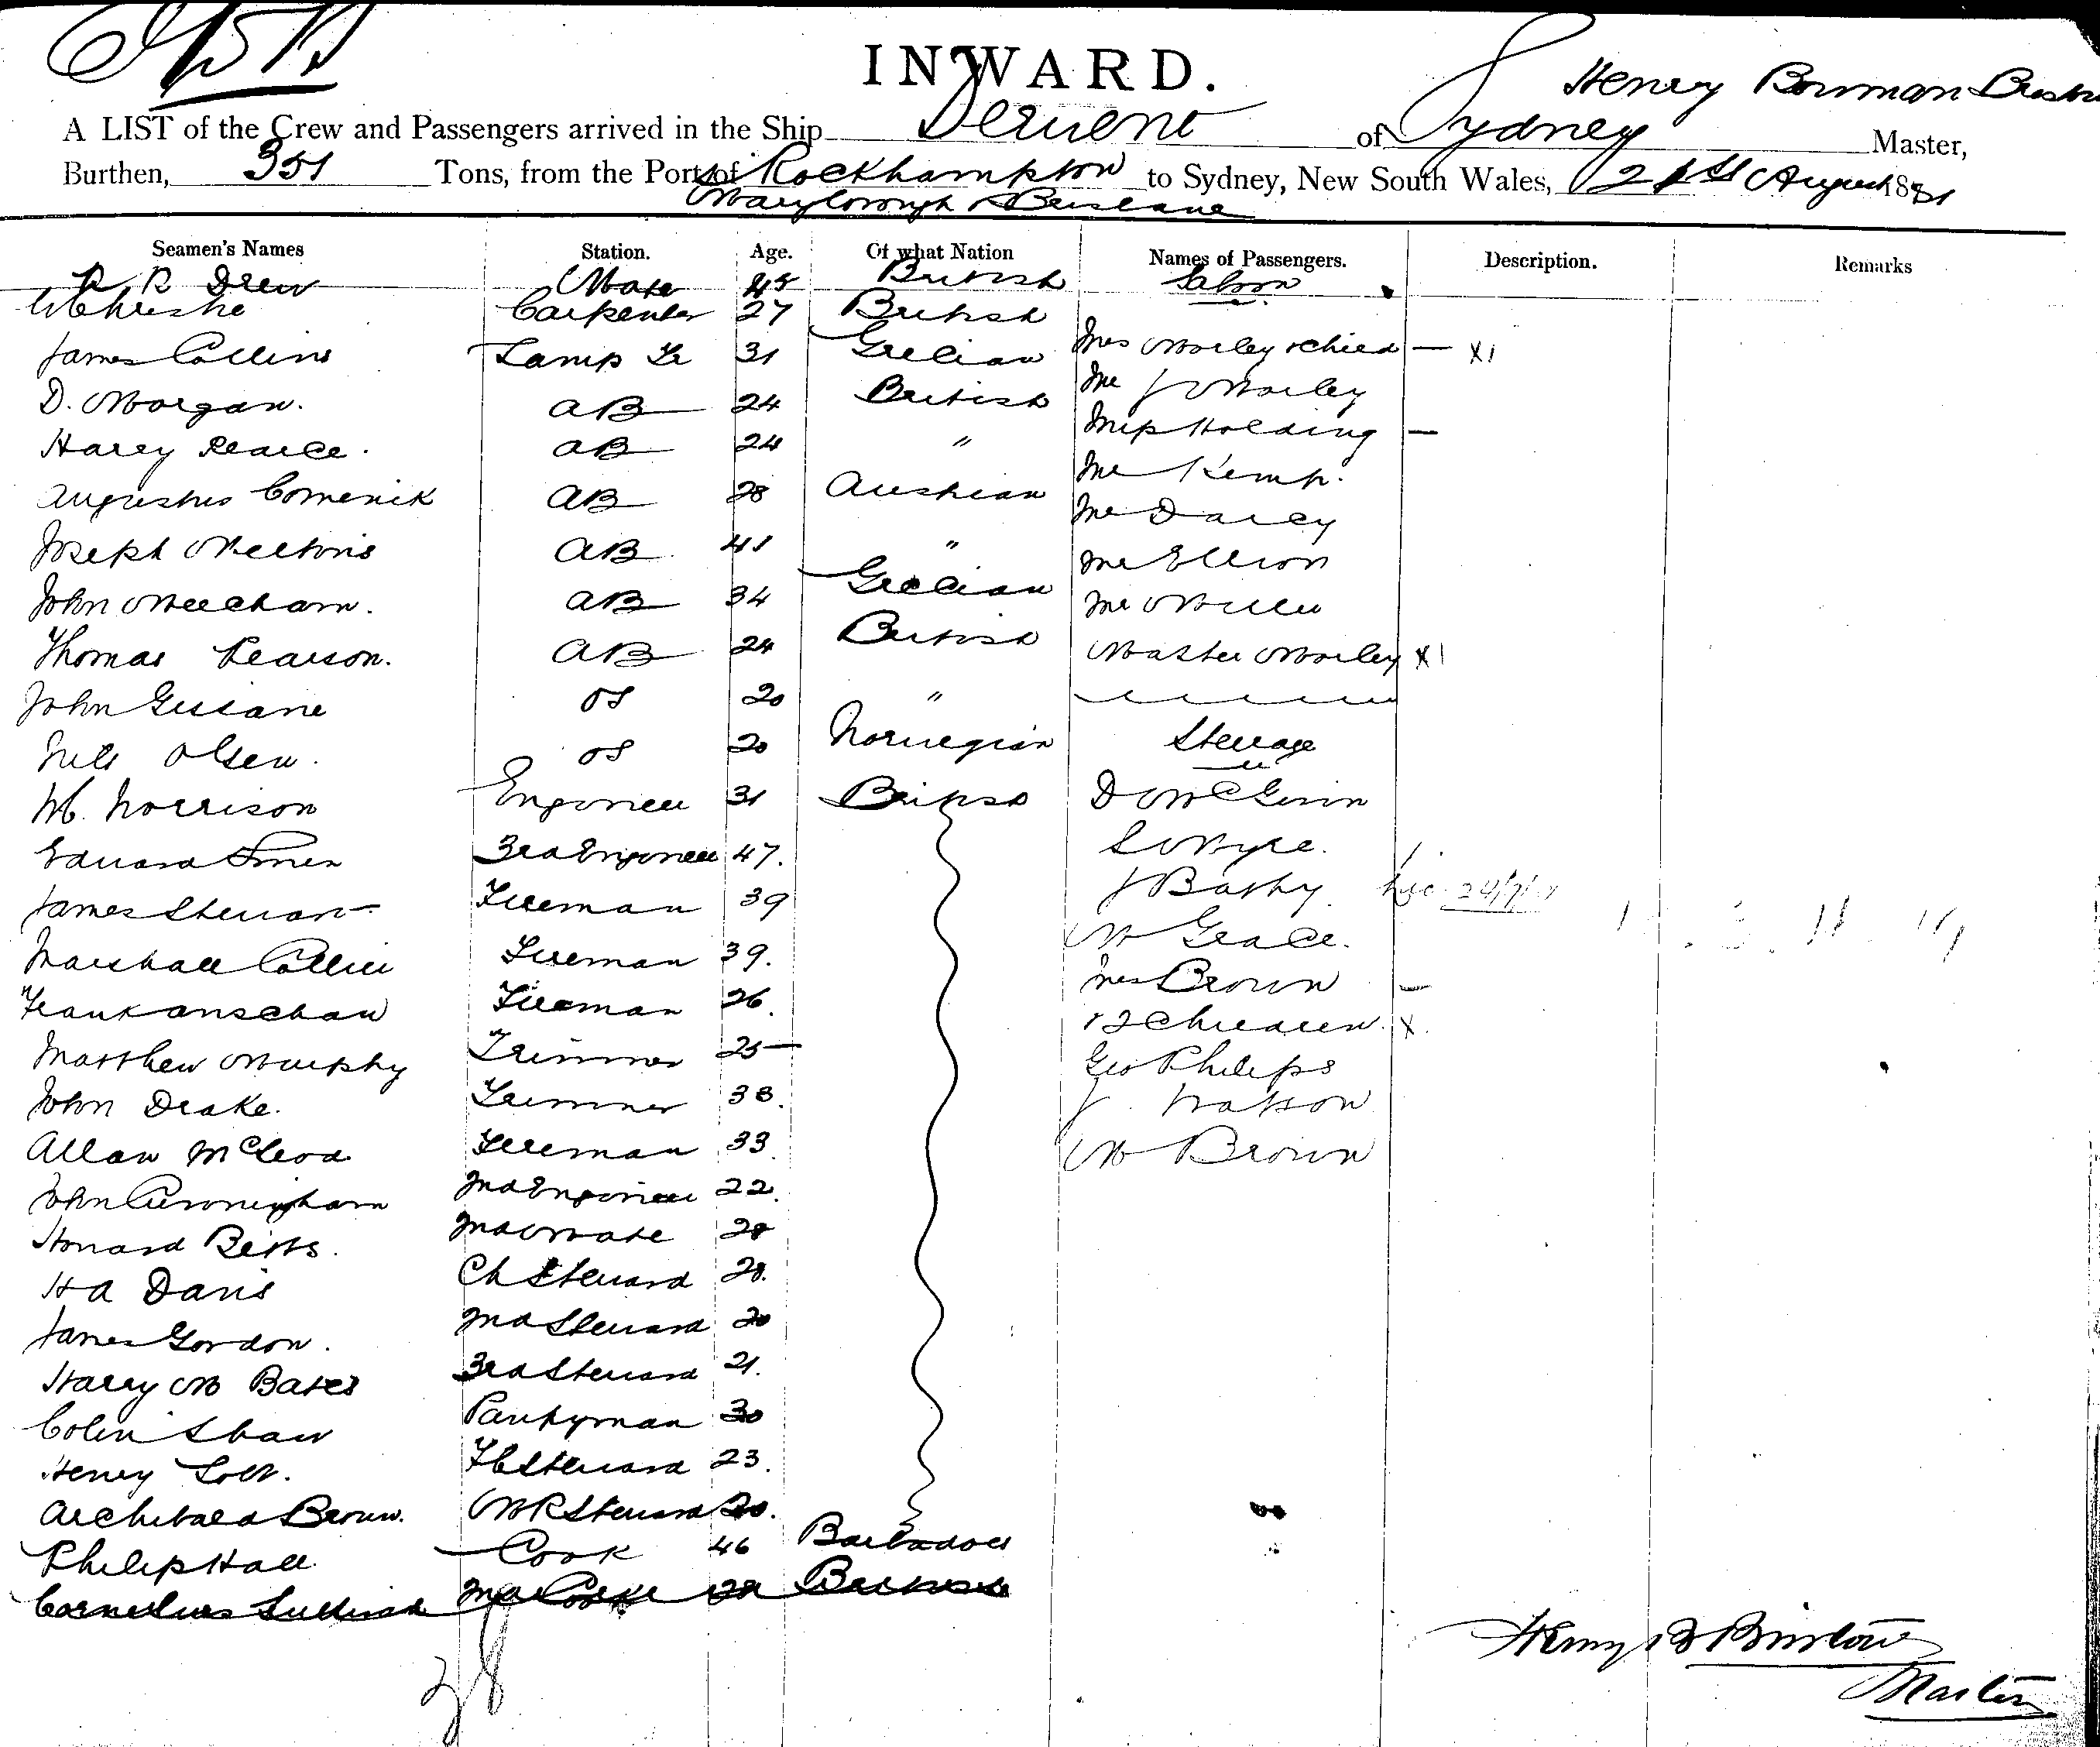 INWARD.
Henry Bowman
A LIST of the Crew and Passengers arrived in the Ship Derwent of Sydney Master,
Burthen, 351 Tons, from the Port of Rockhampton to Sydney, New South Wales, 21st August 1881
Maryborough & Brisbane
Seamen's Names Station. Age. Of what Nation Names of Passengers. Description. Remarks
R R Drew Mate 45 British Saloon
W Christie Carpenter 27 British
James Collins Lamp Tr 31 Grecian Mrs Morley & child — X1
D. Morgan. AB 24 British Mr J Morley
Harry Pearce. AB 24 " Miss Holding —
Augustus Comenik AB 28 Austrian Mr Kemp.
Joseph AB 41 " Mr Darcy
John Meecham. AB 34 Grecian Mr
Thomas Pearson. AB 24 British Mr
John OS 20 " Master Morley X1
Nils Olsen. OS 20 Norwegian Steerage
W. Morrison Engineer 31 British D McGinn
Edward 3rd Engineer 47.
James Stewart Fireman 39 J
Marshall Collier Fireman 39. W Grace.
Frank Fireman 26. Mrs Brown —
Matthew Murphy Trimmer 25 & 2 Children. X.
John Drake. Trimmer 38. Geo Philips
Allan McLeod Fireman 33. J. Watson
John Cunningham 2nd Engineer 22. W Brown
Howard Betts. 2nd Mate 28
H A Davis Ch Steward 28.
James Gordon. 2nd Steward 20
Harry W Bates 3rd Steward 21.
Colin Shaw Pantryman 30
Henry Steward 23.
Archibald Brown. Steward 20.
Philip Hall. Cook 46 Barbadoes
Cornelius Sullivan 2nd Cook 22 British
28
Henry B
Master